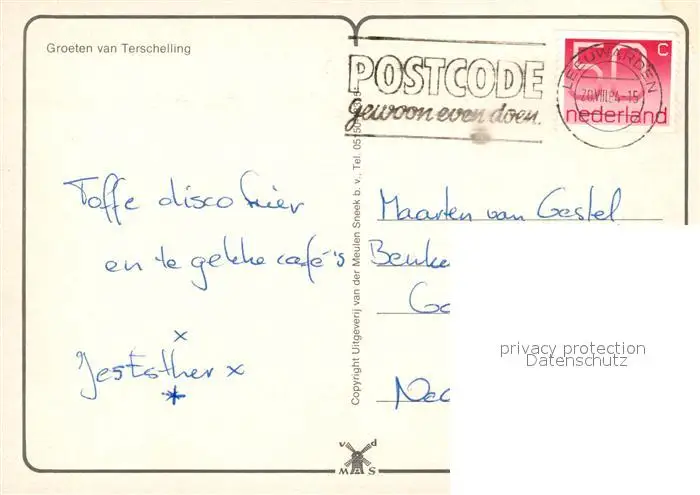 Groeten van Terschelling
POSTCODE
Gewoon even doen.
50 c
nederland
LEEUWARDEN
20.VIII.84-15
Toffe disco hier
en te gekke café's
x
JesEsther x
*
Copyright Uitgeverij van der Meulen Sneek b.v., Tel.
Maarten van Gestel
Beuke
privacy protection
Datenschutz
v d
MAS